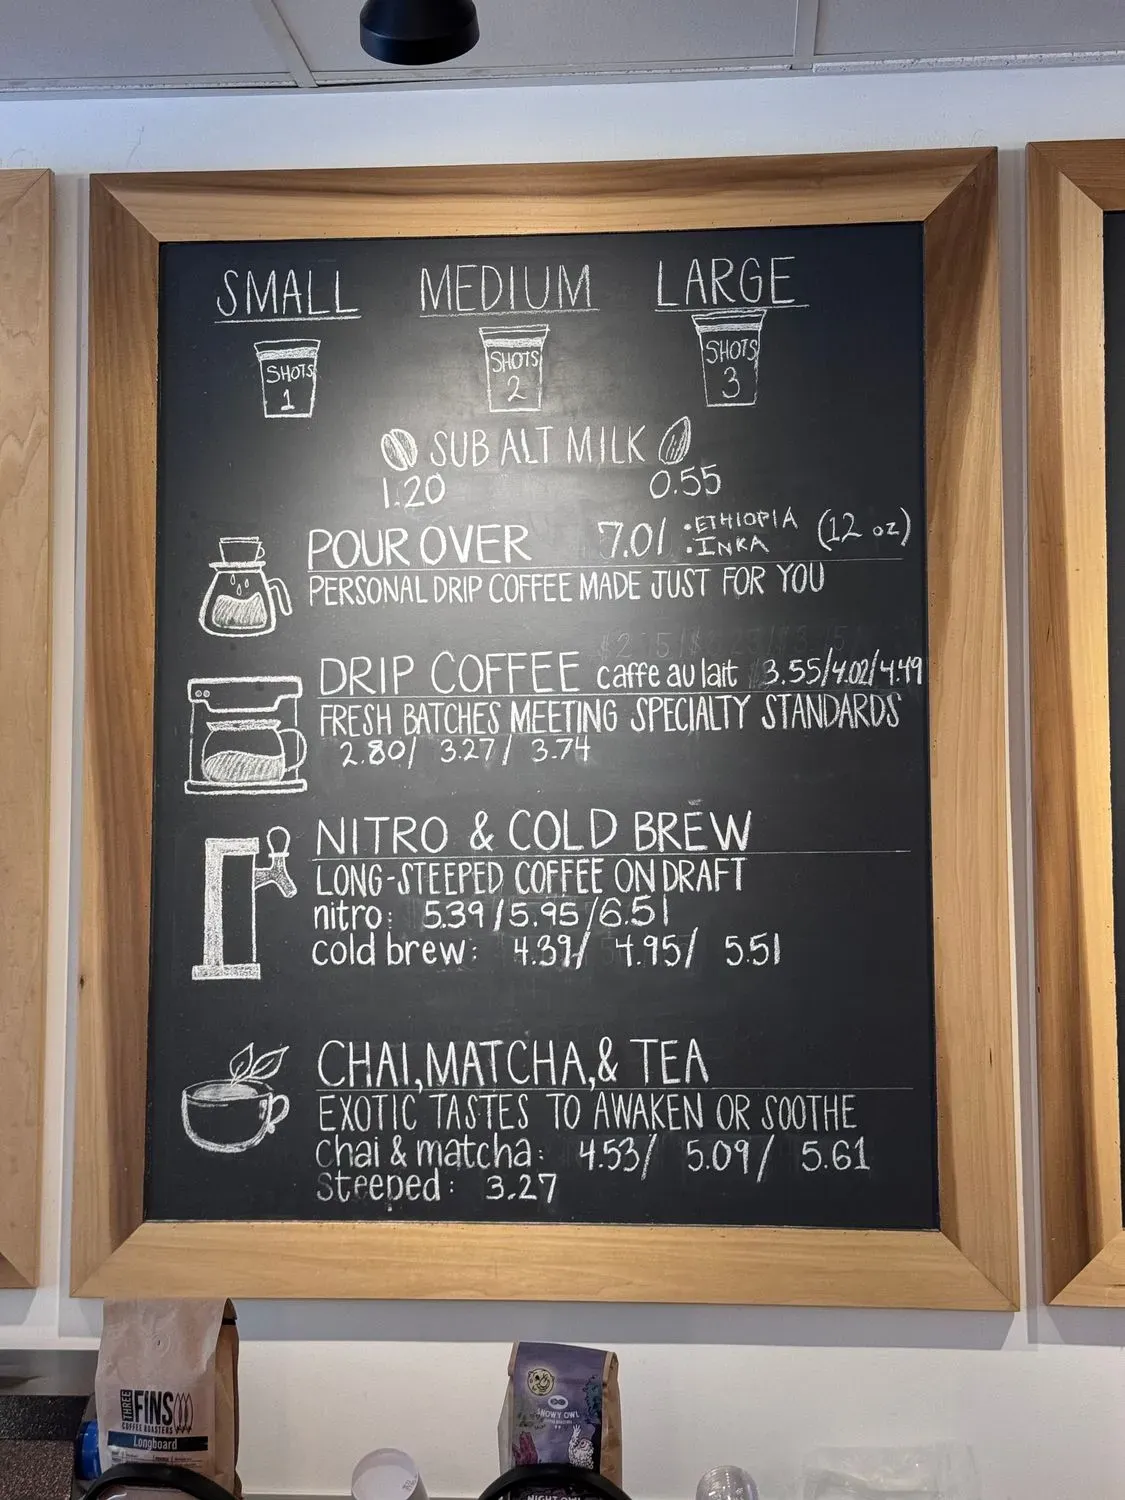 SMALL MEDIUM LARGE
SHOTS SHOTS SHOTS
1 2 3
SUB ALT MILK
1.20 0.55
POUR OVER 7.01 •ETHIOPIA (12 oz)
•INKA
PERSONAL DRIP COFFEE MADE JUST FOR YOU
DRIP COFFEE caffe au lait 3.55/4.02/4.49
FRESH BATCHES MEETING SPECIALTY STANDARDS
2.80/ 3.27/ 3.74
NITRO & COLD BREW
LONG-STEEPED COFFEE ON DRAFT
nitro: 5.39/5.95/6.51
cold brew: 4.39/ 4.95/ 5.51
CHAI, MATCHA, & TEA
EXOTIC TASTES TO AWAKEN OR SOOTHE
Chai & matcha: 4.53/ 5.09/ 5.61
Steeped: 3.27
THREE
FINS
COFFEE ROASTERS
Longboard
SNOWY OWL
COFFEE ROASTERS
NIGHT OWL